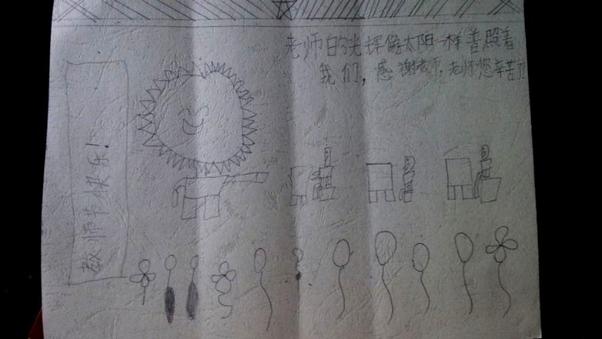 老师的光辉像太阳一样普照着
我们，感谢老师，老师您辛苦了
教师节快乐！